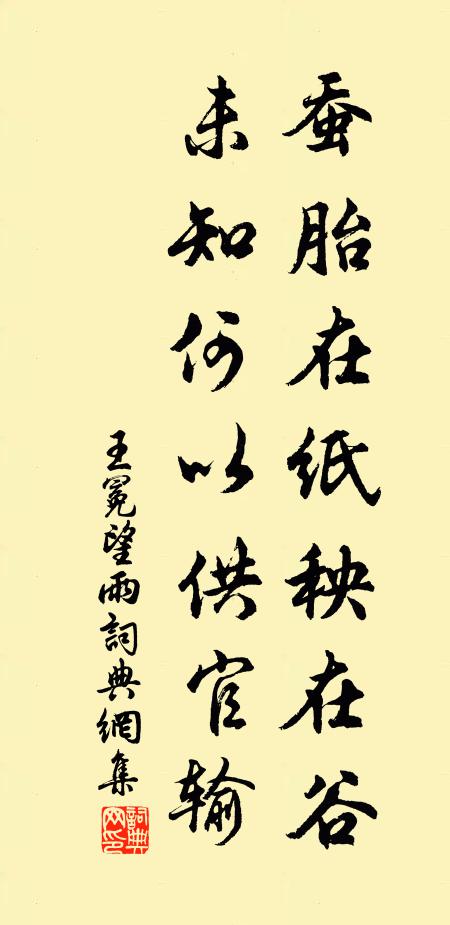 蚕胎在纸秧在谷
未知何以供官输
王冕望雨詞典網集
詞典網印